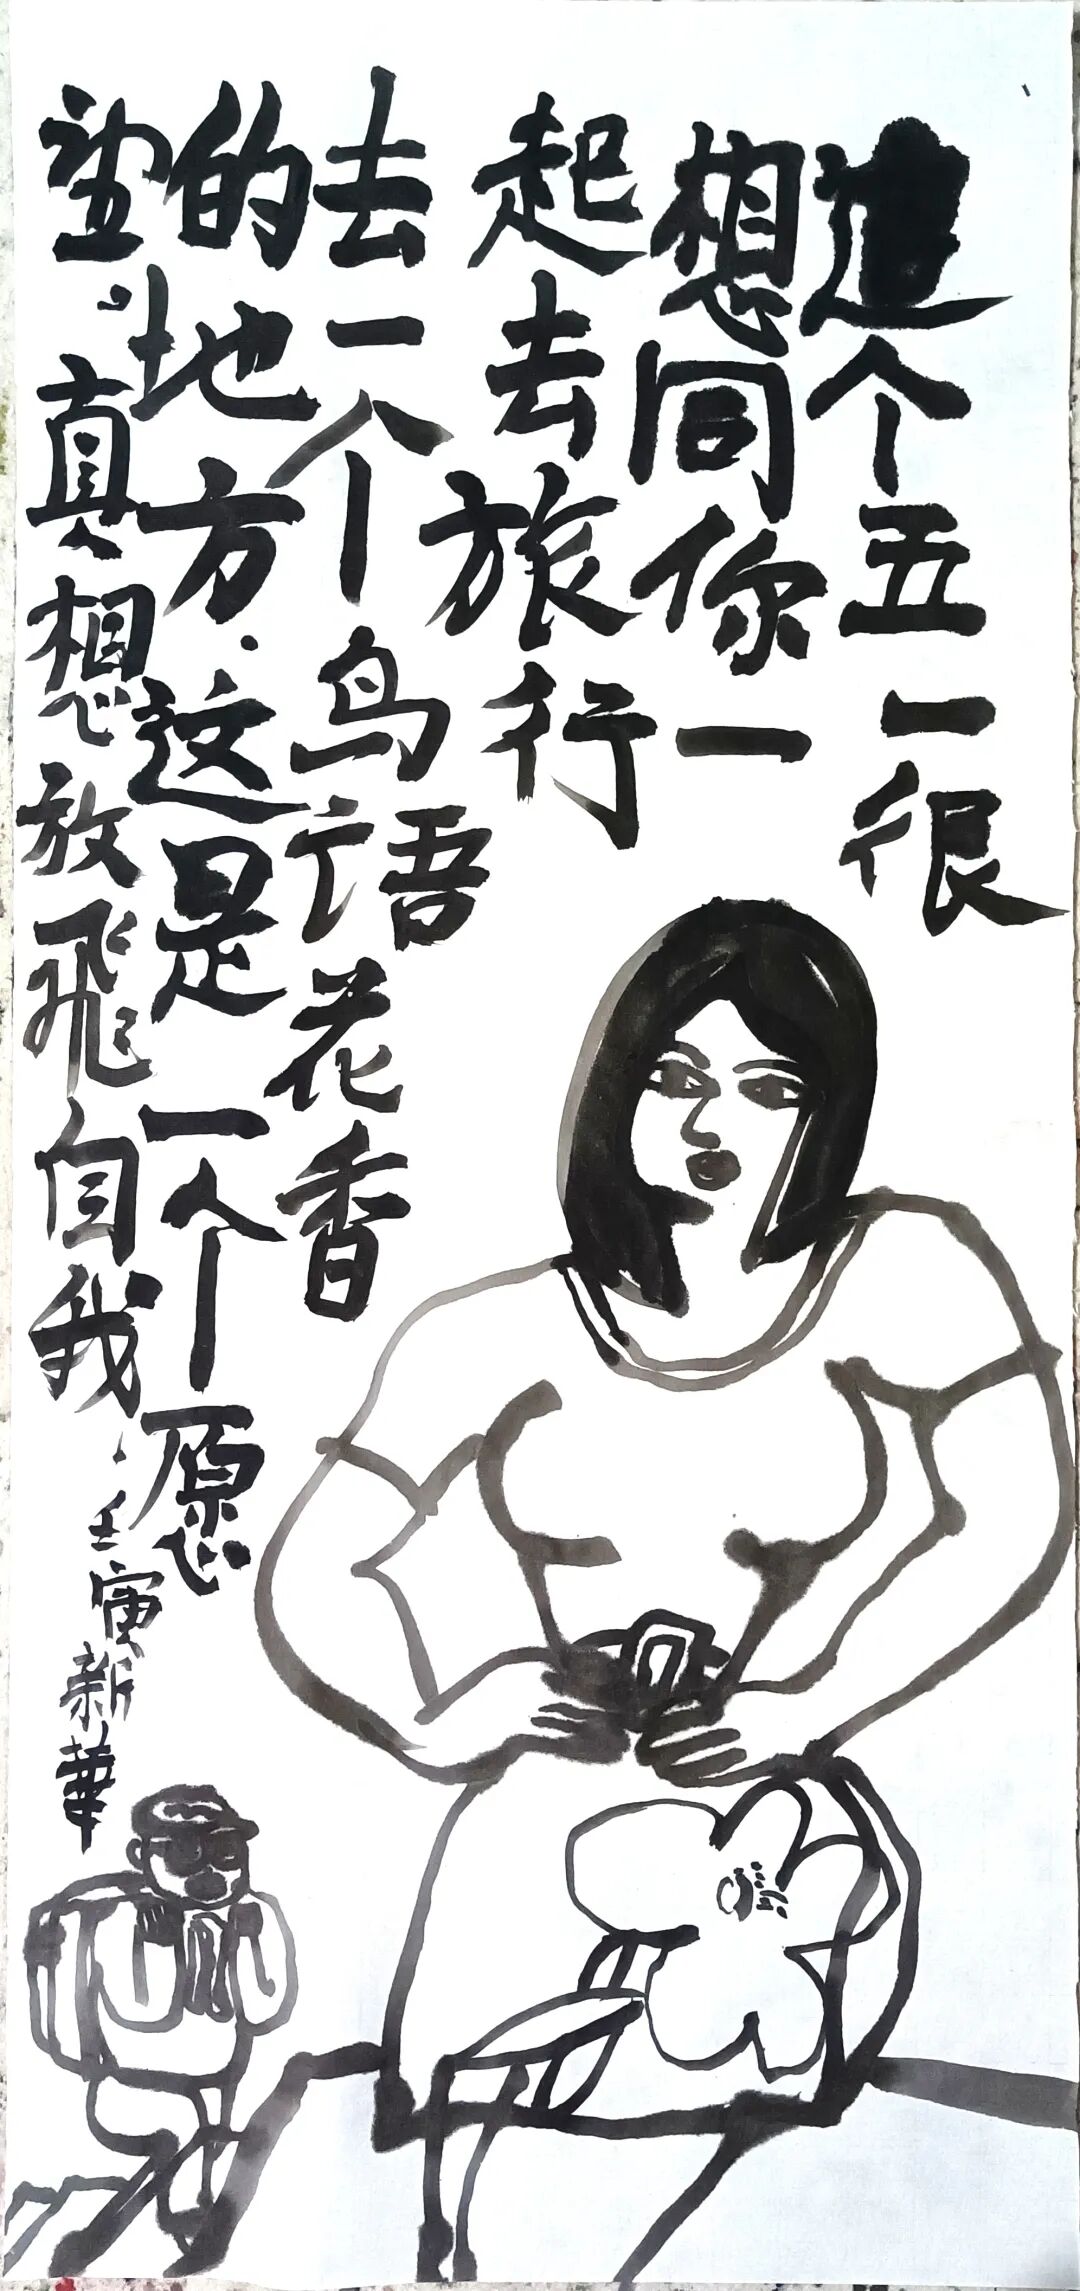 這个五一很
想同你一
起去旅行
去一个鸟语花香
的地方.这是一个愿
望.真想放飛自我.
壬寅新華